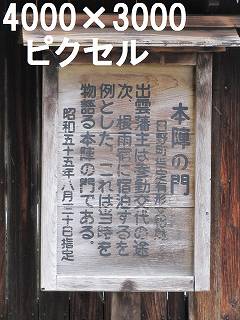 4000×3000
ピクセル
本陣の門
日野町指定有形文化財
出雲藩主は参勤交代の途
次、根雨宿に宿泊するを
例とした。これは当時を
物語る本陣の門である。
昭和五十五年八月二十日指定